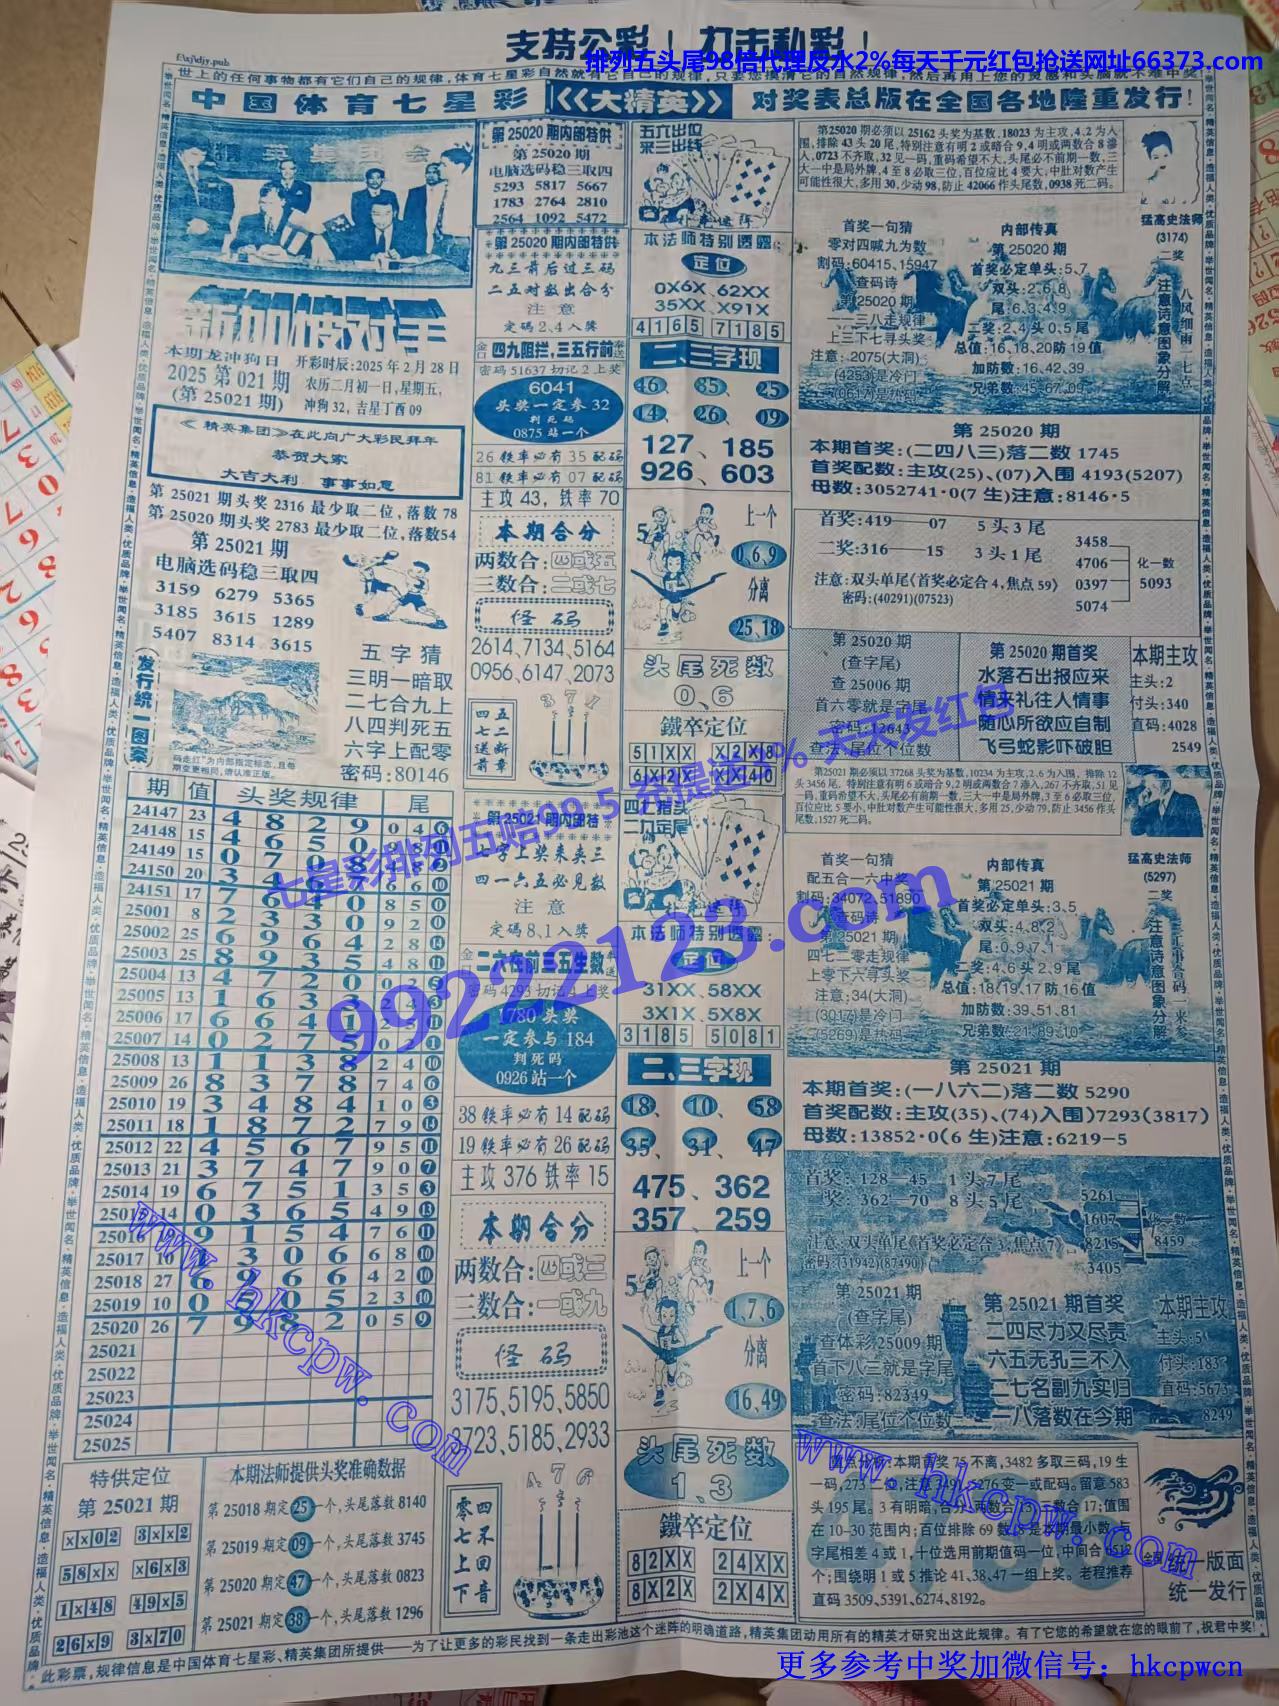 支持公彩！打击私彩！
排列五头尾98倍代理反水2%每天千元红包抢送网址66373.com
f:\xj\djy.pub
世上的任何事物都有它们自己的规律,体育七星彩自然就有它自己的规律,只要您摸清它的自然规律,然后再用上您的灵感和头脑就不难中奖
中国体育七星彩《大精英》对奖表总版在全国各地隆重发行!
新加坡对手
本期龙冲狗日 开彩时辰:2025年2月28日
2025第021期 农历二月初一日,星期五,
(第25021期) 冲狗32,吉星丁酉09
《精英集团》在此向广大彩民拜年
恭贺大家
大吉大利 事事如意
第25021期头奖2316最少取二位,落数78
第25020期头奖2783最少取二位,落数54
第25021期
电脑选码稳三取四
3159 6279 5365
3185 3615 1289
5407 8314 3615
发行统一图案
五字猜
三明一暗取
二七合九上
八四判死五
六字上配零
密码:80146
期 值 头奖规律 尾
24147 23 4 8 2 9 0 4 6
24148 15 4 6 5 0
24149 15 0 7 0 8
24150 20 3 4
24151 17 7 6 4 0 8 5 0
25001 8 2 3 3 0 9 2 0
25002 25 6 9 6 4 2 8 14
25003 25 8 9 3 5 4 8 11
25004 13 4 7 2 0 0 2
25005 13 1 6 3 3
25006 17 6 6 4 1
25007 14 0 2 7 5 0 1
25008 13 1 1 3 8 2 4 10
25009 26 8 3 7 8 7 4 6
25010 19 3 4 8 4 1 0 3
25011 18 1 8 7 2 7 9 14
25012 22 4 5 6 7 9 5 11
25013 21 3 7 4 7 9 0 7
25014 19 6 7 5 1 3 5 3
14 0 3 6 5 4 9 13
9 1 5 4 7 6 11
25017 10 1 3 0 6 6 8 10
25018 27 6 9 6 6 4 2 10
25019 10 0 5 0 5 2 3 10
25020 26 7 9 8 2 0 5 9
25021
25022
25023
25024
25025
特供定位
第25021期
××02 3××2
58×× ×6×3
1×48 49×5
26×9 3×70
本期法师提供头奖准确数据
第25018期定25一个,头尾落数8140
第25019期定09一个,头尾落数3745
第25020期定47一个,头尾落数0823
第25021期定38一个,头尾落数1296
第25020期内部特供
第25020期
电脑选码稳三取四
5293 5817 5667
1783 2764 2810
2564 1092 5472
第25020期内部特供
九三前后过三码
二五对数出合分
注意
定码2、4入奖
四九阻拦,三五行前
密码51637切记2上奖
6041
头奖一定参32
判死码
0875站一个
26铁率必有35配码
81铁率必有07配码
主攻43,铁率70
本期合分
两数合:四或五
三数合:二或七
怪码
2614,7134,5164
0956,6147,2073
四五
七二
送断
前章
第25021期内部特
七字上奖来卖三
四一六五必见数
注意
定码8、1入奖
二六在前三五生数
密码4293切记4上奖
1780头奖
一定参与184
判死码
0926站一个
38铁率必有14配码
19铁率必有26配码
主攻376铁率15
本期合分
两数合:四或三
三数合:一或九
怪码
3175、5195、5850
2723、5185、2933
零四
七不
上回
下音
五六出位
来三出线
扑克迷阵
本法师特别透露:
定位
0X6X、62XX
35XX、X91X
4165 7185
二、三字现
46、85、25
14、26、09
127、185
926、603
上一个
0,6,9
分离
25,18
头尾死数
0、6
鐵卒定位
51XX X2X8
6X2X XX40
四七猎头
二九定尾
本法师特别透露:
定位
31XX、58XX
3X1X、5X8X
3185 5081
二、三字现
18、10、58
35、31、47
475、362
357、259
上一个
1,7,6
分离
16,49
头尾死数
1、3
鐵卒定位
82XX 24XX
8X2X 2X4X
第25020期必须以25162头奖为基数,18023为主攻,4、2为入
围,排除43头20尾,特别注意有明2或暗合9,4明或两数合8渗
入,0723不齐取,32见一码,重码希望不大,头尾必不前期一数,三
大一中是局外牌,4至8必取三位,百位应比4要大,中肚对数产生
可能性很大,多用30,少动98,防止42066作头尾数,0938死二码。
猛高史法师
(3174)
二奖
八风细雨二七点
注意诗意图象分解
首奖一句猜
零对四喊九为数
割码:60415,15947
查码诗
第25020期
一三八走规律
上三下七寻头奖
注意:2075(大洞)
(4253)是冷门
(0617)是热码
内部传真
第25020期
首奖必定单头:5、7
双头:2、6、8
尾:6、3、4、9
二奖:2、4头0、5尾
总值:16、18、20防19值
加防数:16、42、39
兄弟数:45、67、09
第25020期
本期首奖:(二四八三)落二数1745
首奖配数:主攻(25)、(07)入围4193(5207)
母数:3052741·0(7生)注意:8146·5
首奖:419——07 5头3尾
二奖:316——15 3头1尾
注意:双头单尾《首奖必定合4,焦点59》
密码:(40291)(07523)
3458
4706
0397
5074
化一数
5093
第25020期
(查字尾)
查25006期
首六零就是字尾
密码:12643
查法:尾位个位数
第25020期首奖
水落石出报应来
情来礼往人情事
随心所欲应自制
飞弓蛇影吓破胆
本期主攻
主头:2
付头:340
直码:4028
2549
第25021期必须以37268头奖为基数,10234为主攻,2、6为入围,排除12
头3456尾,特别注意有明6或暗合9,2明或两数合7渗入,267不齐取,51见
一码,重码希望不大,头尾必有前期一数,三大一中是局外牌,3至6必取三位,
百位应比5要小,中肚对数产生可能性很大,多用25,少动79,防止3456作头
尾数,1527死二码。
猛高史法师
(5297)
二奖
注意诗意图象分解
首奖一句猜
配五合一六中奖
割码:34072,51890
查码诗
第25021期
四七二零走规律
上零下六寻头奖
注意:34(大洞)
(3017)是冷门
(5269)是热码
内部传真
第25021期
首奖必定单头:3、5
双头:4、8、2
尾:0、9、7、1
二奖:4、6头2、9尾
总值:18、19、17防16值
加防数:39、51、81
兄弟数:21、89、10
第25021期
本期首奖:(一八六二)落二数5290
首奖配数:主攻(35)、(74)入围)7293(3817)
母数:13852·0(6生)注意:6219-5
首奖:128—45 1头7尾
二奖 362—70 8头5尾
注意:双头单尾《首奖必定合3,焦点7》
密码:(31942)(87490)
5261
1607
8215
3405
化一数
8459
第25021期
(查字尾)
查体彩25009期
首下八三就是字尾
密码:82349
查法:尾位个位数
第25021期首奖
二四尽力又尽责
六五无孔三不入
二七名副九实归
一八落数在今期
本期主攻
主头:5
付头:183
直码:5673
8249
重点分析:本期首奖75不离,3482多取三码,19生
一码,273二位,注意3491、5276变一或配码。留意583
头195尾。3有明暗,合分:两数合13,三数合17;值围
在10-30范围内;百位排除69数,8是本期最小数,与
字尾相差4或1,十位选用前期值码一位,中间合6512
个;围绕明1或5推论41、38、47一组上奖。老程推荐
直码3509、5391、6274、8192。
全国统一版面
统一发行
此彩票,规律信息是中国体育七星彩、精英集团所提供——为了让更多的彩民找到一条走出彩池这个迷阵的明确道路,精英集团动用所有的精英才研究出这此规律。有了它您的希望就在您的眼前了,祝君中奖!
七星彩排列五赔99.5 充提送3% 天天发红包
9922123.com
www.hkcpw.com
www.hkcpw.com
更多参考中奖加微信号：hkcpwcn